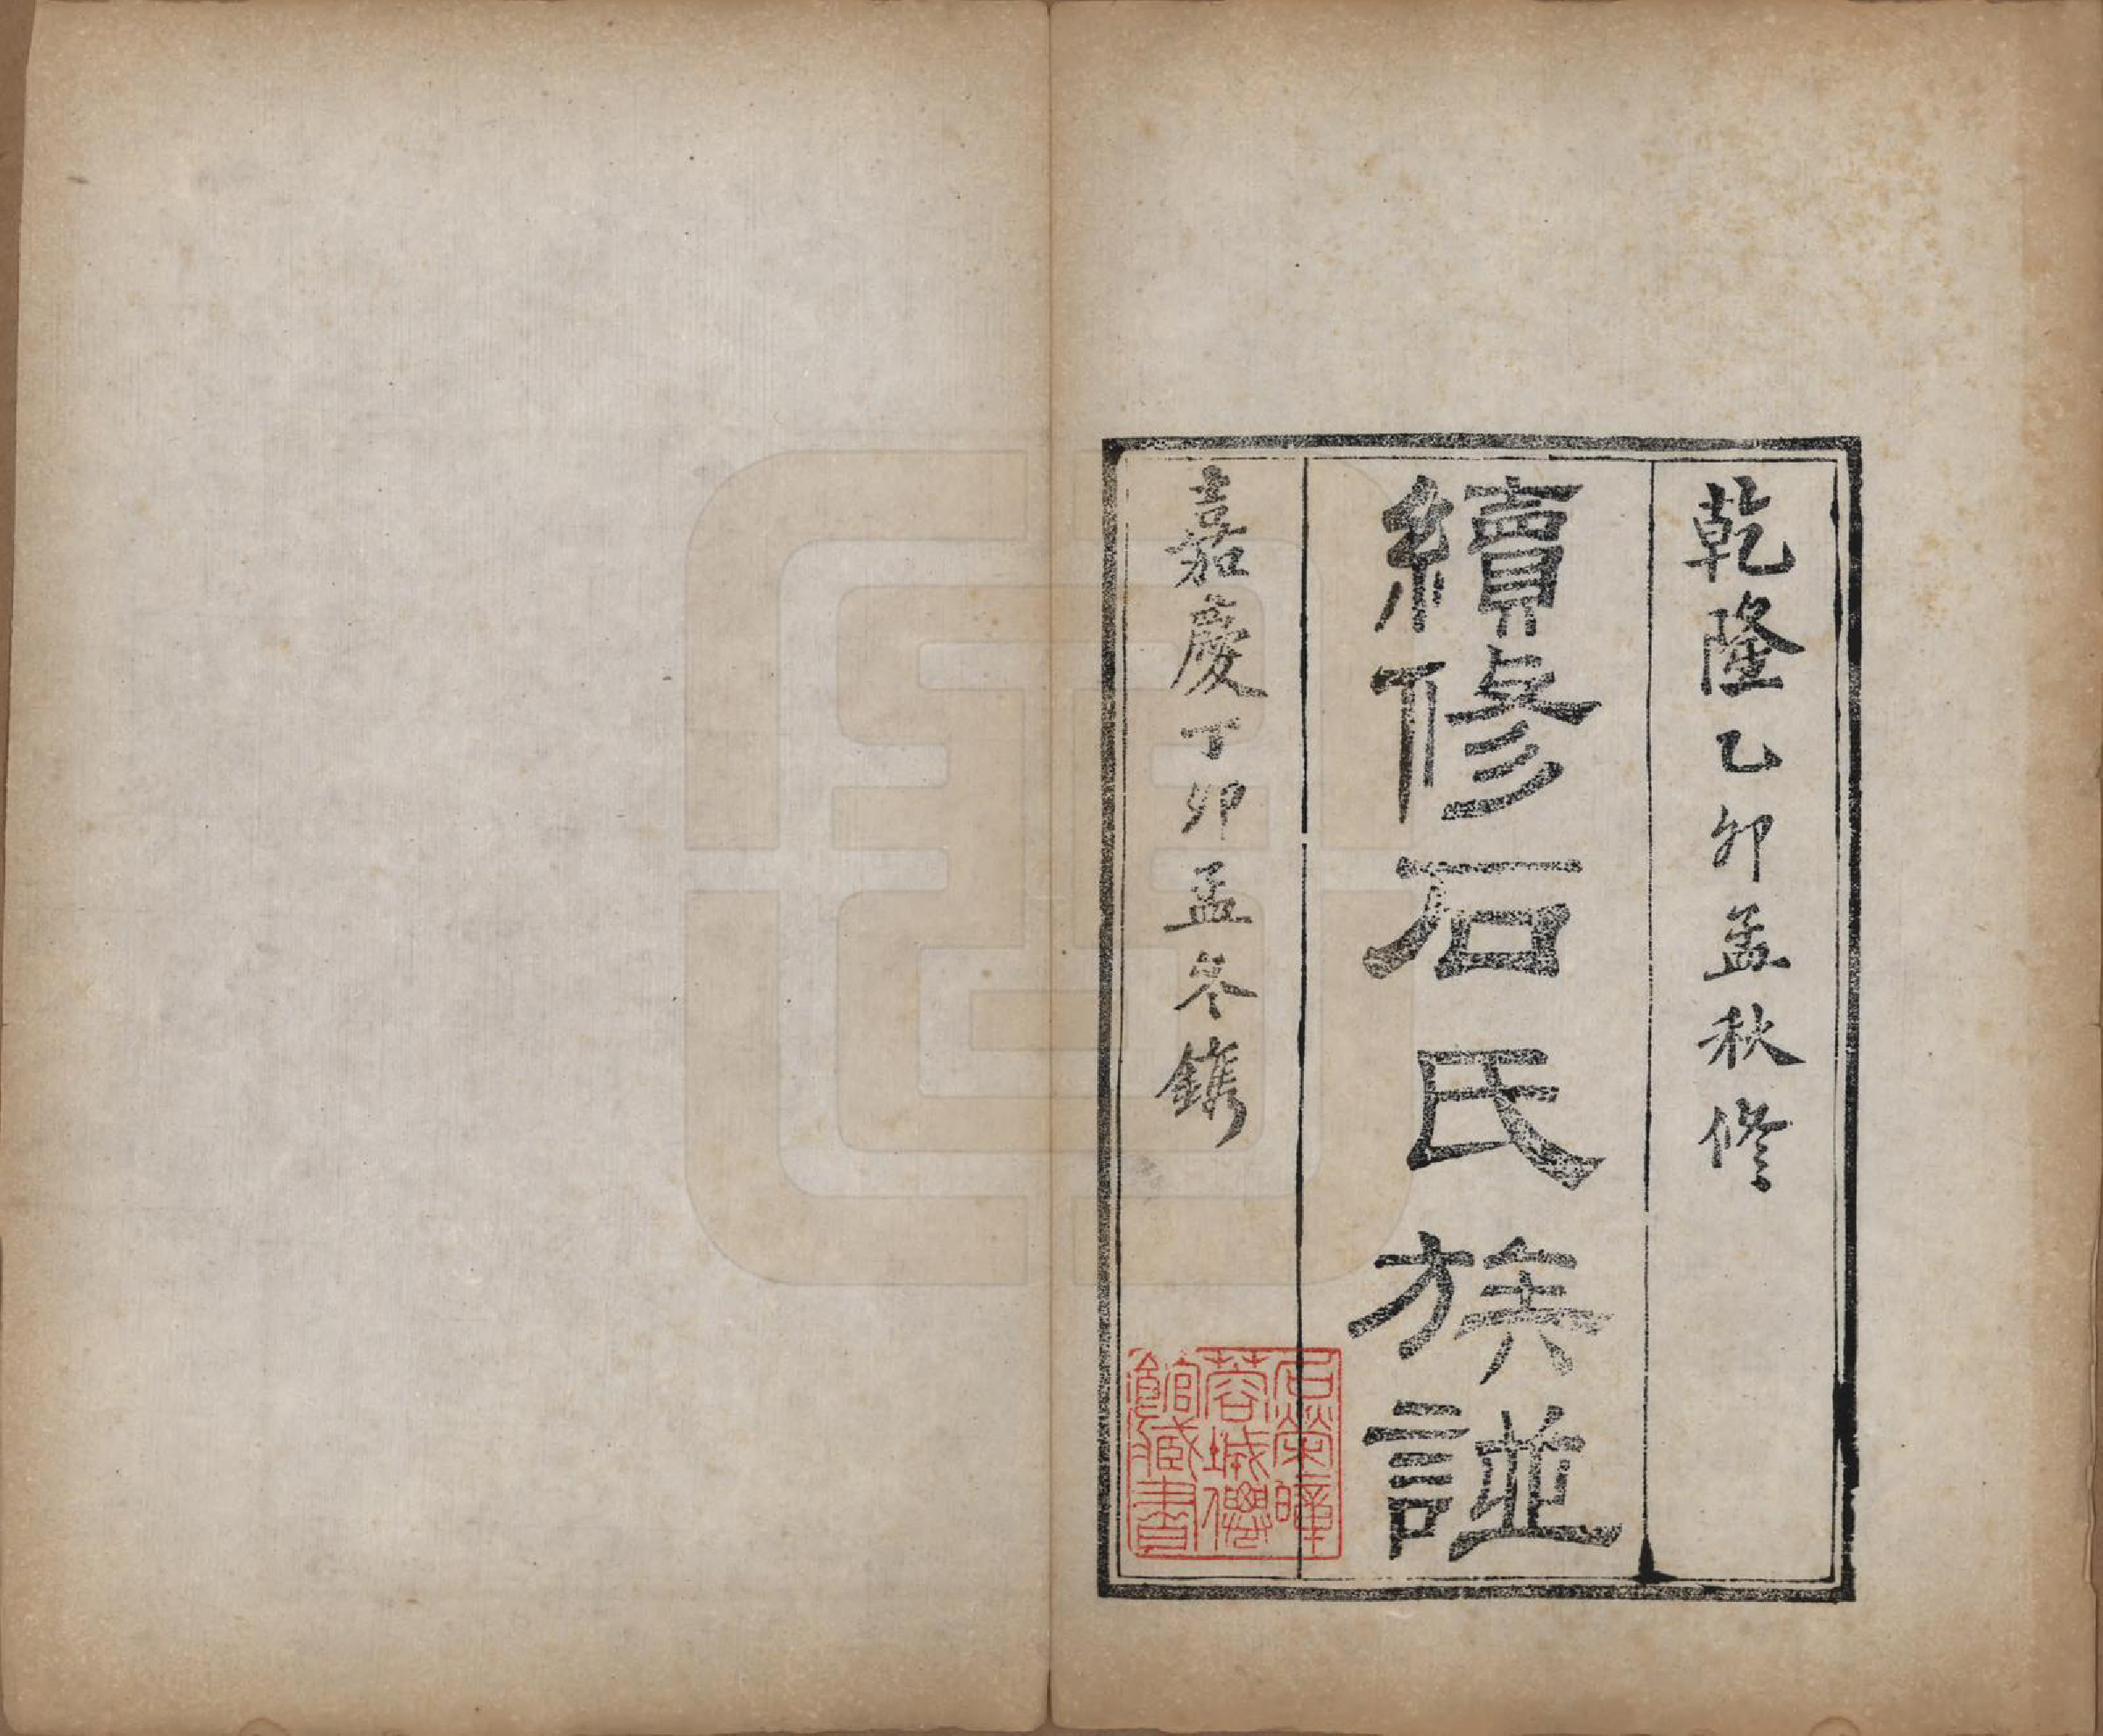 乾隆乙卯孟秋修
續修石氏族譜
嘉慶丁卯孟冬鐫
石榮暲
蓉城僊
館藏書